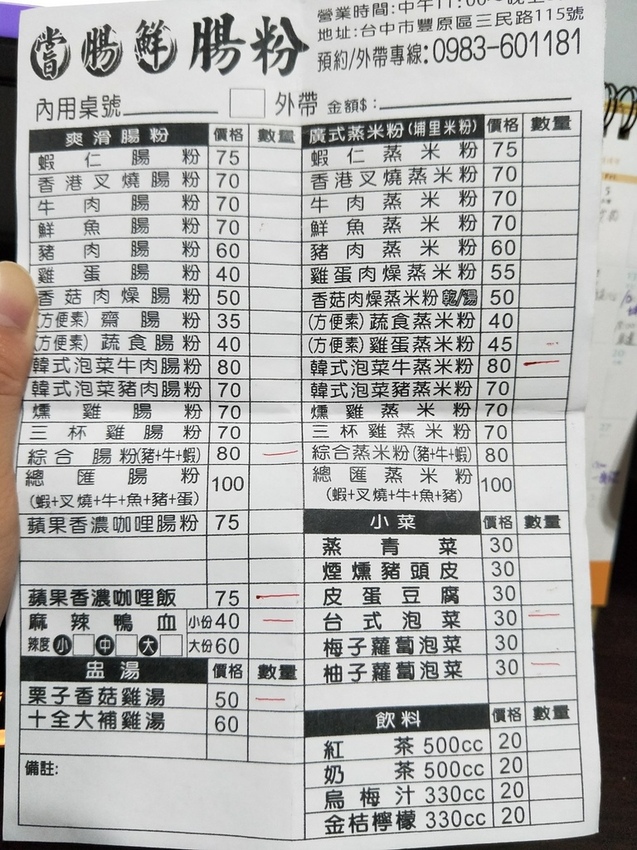 嘗腸鮮腸粉
營業時間:中午11:00
地址:台中市豐原區三民路115號
預約/外帶專線:0983-601181
內用桌號 外帶 金額$:
爽滑腸粉 價格 數量
蝦仁腸粉 75
香港叉燒腸粉 70
牛肉腸粉 70
鮮魚腸粉 70
豬肉腸粉 60
雞蛋腸粉 40
香菇肉燥腸粉 50
(方便素)齋腸粉 35
(方便素)蔬食腸粉 40
韓式泡菜牛肉腸粉 80
韓式泡菜豬肉腸粉 70
燻雞腸粉 70
三杯雞腸粉 70
綜合腸粉(豬+牛+蝦) 80
總匯腸粉 100
(蝦+叉燒+牛+魚+豬+蛋)
蘋果香濃咖哩腸粉 75
蘋果香濃咖哩飯 75
麻辣鴨血 小份40
辣度 小 中 大 大份60
盅湯 價格 數量
栗子香菇雞湯 50
十全大補雞湯 60
備註:
廣式蒸米粉(埔里米粉) 價格 數量
蝦仁蒸米粉 75
香港叉燒蒸米粉 70
牛肉蒸米粉 70
鮮魚蒸米粉 70
豬肉蒸米粉 60
雞蛋肉燥蒸米粉 55
香菇肉燥蒸米粉乾/湯 50
(方便素)蔬食蒸米粉 40
(方便素)雞蛋蒸米粉 45
韓式泡菜牛蒸米粉 80
韓式泡菜豬蒸米粉 70
燻雞蒸米粉 70
三杯雞蒸米粉 70
綜合蒸米粉(豬+牛+蝦) 80
總匯蒸米粉 100
(蝦+叉燒+牛+魚+豬)
小菜 價格 數量
蒸青菜 30
煙燻豬頭皮 30
皮蛋豆腐 30
台式泡菜 30
梅子蘿蔔泡菜 30
柚子蘿蔔泡菜 30
飲料 價格 數量
紅茶500cc 20
奶茶500cc 20
烏梅汁330cc 20
金桔檸檬330cc 20